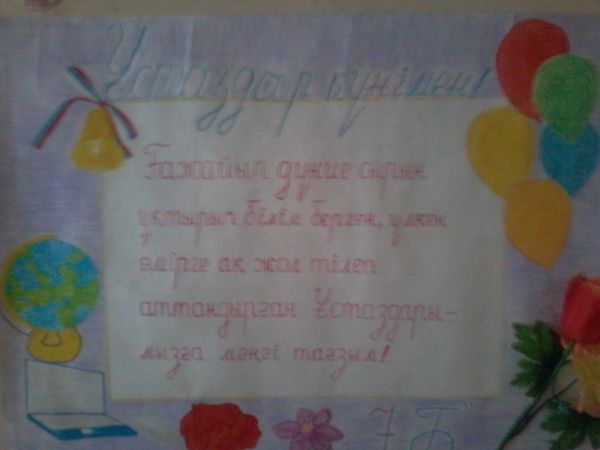 Ұстаздар күнімен!
Ғажайып дүние сырын
ұқтырып білім берген, үлкен
өмірге ақ жол тілеп
аттандырған Ұстаздары-
мызға мәңгі тағзым!
7 "Б"